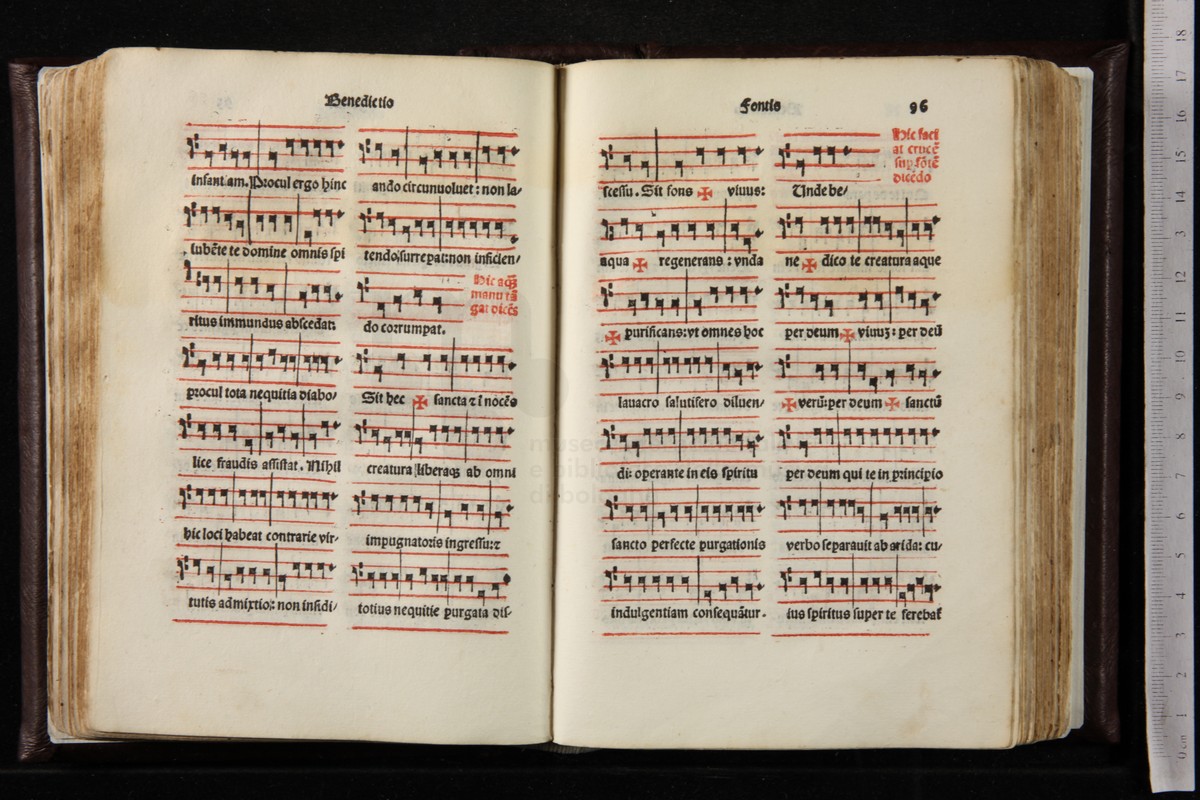 Benedictio
infant iam. Procul ergo hinc
iubēte te domine omnis spi
ritus immundus abscedat:
procul tota nequitia diabo/
lice fraudis assistat. Nihil
hic loci habeat contrarie vir/
tutis admixtio: non insidi/
ando circunuoluet: non la/
tendo surrepat: non inficien/
Hic aq̄
manu tā
gat dicēs
do corrumpat.
Sit hec ✠ sancta ⁊ ī nocēs
creatura liberaqꝫ ab omni
impugnatoris ingressu: ⁊
totius nequitie purgata dis-
Fontis 96
scessu. Sit fons ✠ viuus:
aqua ✠ regenerans: vnda
✠ purificans: vt omnes hoc
lauacro salutifero diluen/
di: operante in eis spiritu
sancto perfecte purgationis
indulgentiam consequātur.
Hic faci
at crucē
suꝑ fōtē
dicēdo
Unde be/
ne ✠ dico te creatura aque
per deum ✠ viuuꝫ: per deū
✠ verū: per deum ✠ sanctū
per deum qui te in principio
verbo separauit ab arida: cu/
ius spiritus super te ferebat̄